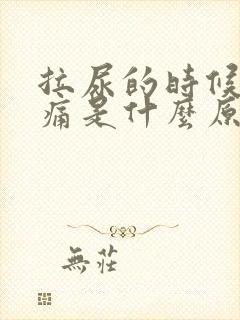 拉尿的時候
痛是什麼原
無莊